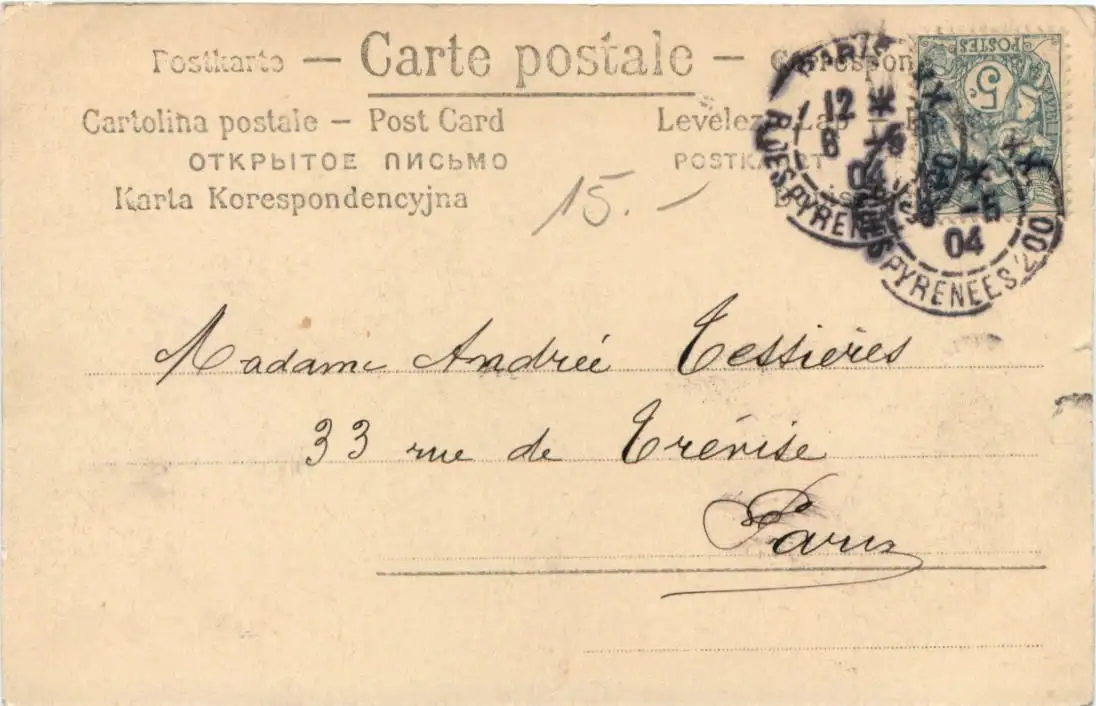 Postkarte — Carte postale —
Cartolina postale — Post Card
ОТКРЫТОЕ ПИСЬМО
Karta Korespondencyjna
Levelező Lap —
15.–
POSTES
5
PARIS
12
6 -5
04
R. DES PYRENEES
-5
04
PYRENEES 200
Madame Andrée Tessières
33 rue de Trévise
Paris